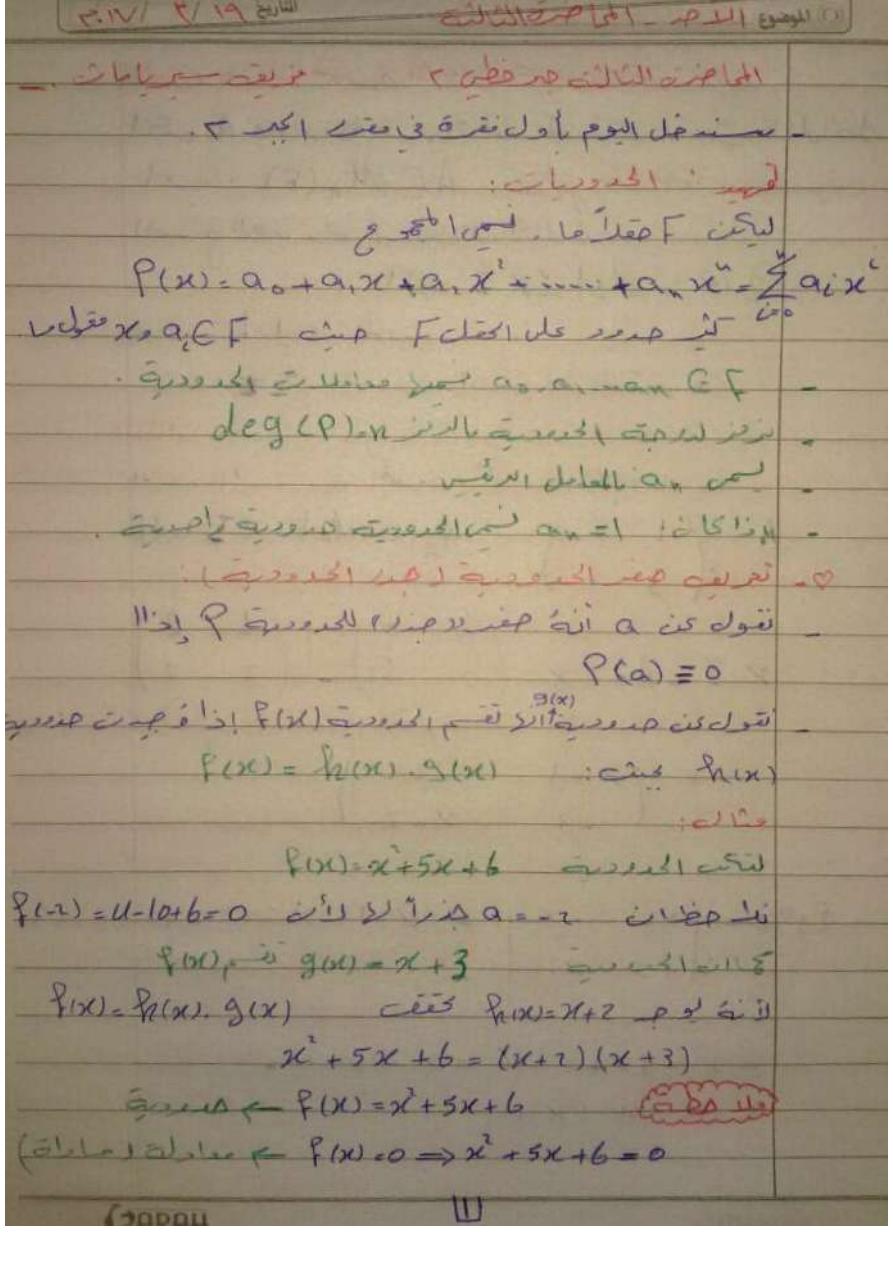 الموضوع الأحد - المحاضرة الثالثة التاريخ ١٩ / ٣ / ٢٠١٧
المحاضرة الثالثة جبر خطي ٢
- سندخل اليوم بأول فقرة في مقرر الجبر ٢.
تمهيد: الحدوديات:
ليكن F حقلاً ما. نسمي المجموع
P(x) = a₀ + a₁x + a₁x² + ..... + aₙxⁿ = Σⁿᵢ₌₀ aᵢxⁱ
كثير حدود على الحقل F حيث aᵢ ∈ F و x
- a₀, a₁ ... aₙ ∈ F نسميها معاملات الحدودية.
- نرمز لدرجة الحدودية بالرمز deg(P)=n
- يسمى aₙ بالمعامل الرئيس.
- إذا كان: aₙ = 1 نسمي الحدودية حدودية واحدية.
♡- تعريف صفر الحدودية (جذر الحدودية):
- نقول عن a أنه صفر (جذر) للحدودية P إذا
P(a) ≡ 0
- نقول عن حدودية g(x) تقسم الحدودية f(x) إذا وجدت حدودية
h(x) بحيث: f(x) = h(x).g(x)
مثال:
لتكن الحدودية f(x)=x²+5x+6
نلاحظ أن a = -2 جذراً لها لأن f(-2) = 4-10+6=0
كما أن الحدودية g(x) = x+3 تقسم f(x)
لأنه يوجد h(x)=x+2 تحقق f(x)=h(x).g(x)
x²+5x+6 = (x+2)(x+3)
ملاحظة: f(x) = x²+5x+6 ← حدودية
f(x)=0 ⟹ x²+5x+6=0 ← معادلة (مساواة)
1